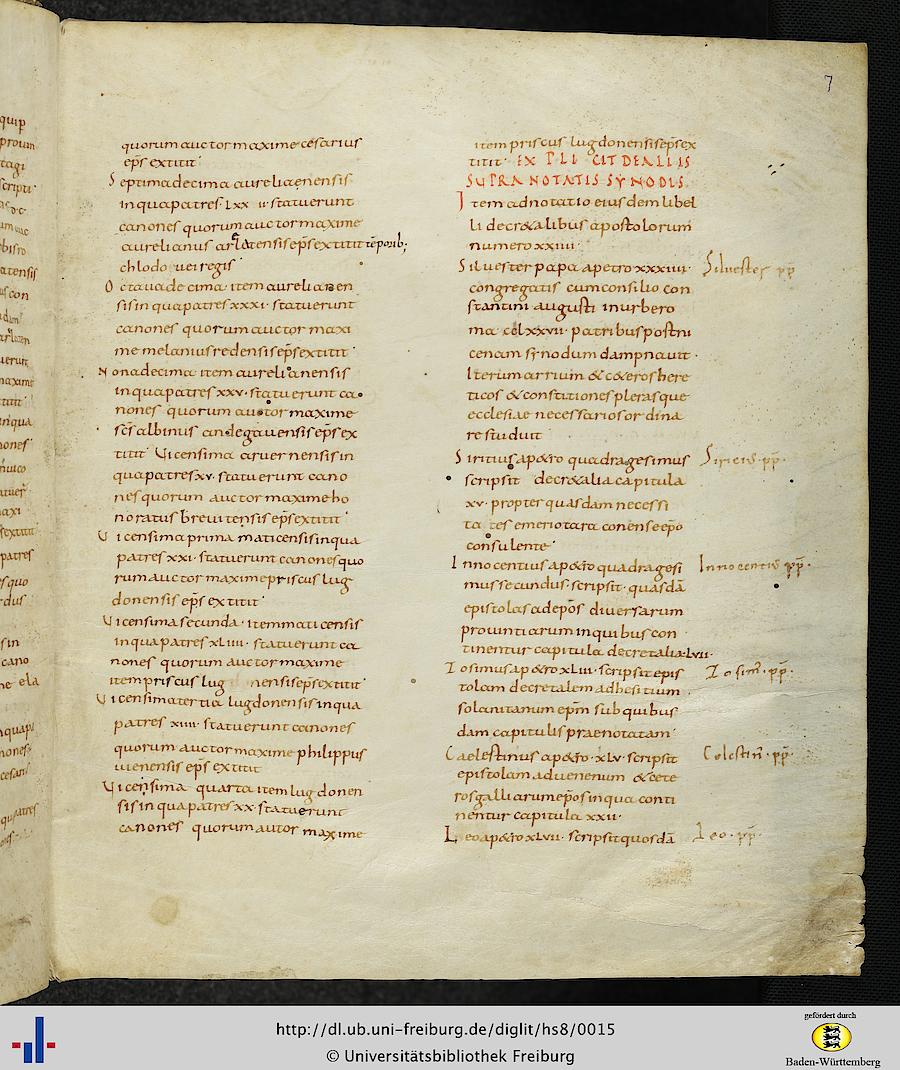 7
quorum auctor maxime cesarius
ep̄s extitit
Septimadecima aurelianensis
in qua patres lxx ii statuerunt
canones quorum auctor maxime
aurelianus arlatensis ep̄s extitit tēporib;
chlodouei regis
Octauadecima item aurelianen
sis in qua patres xxxi statuerunt
canones quorum auctor maxi
me melanius redensis ep̄s extitit
Nonadecima item aurelianensis
in qua patres xxv statuerunt ca
nones quorum auctor maxime
sc̄s albinus andegauensis ep̄s ex
titit Uicensima aruernensis in
qua patres xv statuerunt cano
nes quorum auctor maxime ho
noratus
Uicensima prima maticensis in qua
patres xxi statuerunt canones quo
rum auctor maxime priscus lug
donensis ep̄s extitit
Uicensima secunda item maticensis
in qua patres xliiii statuerunt ca
nones quorum auctor maxime
item priscus lug nensis ep̄s extitit
Uicensima tertia lugdonensis in qua
patres xiiii statuerunt canones
quorum auctor maxime philippus
uienensis ep̄s extitit
Uicensima quarta item lugdonen
sis in qua patres xx statuerunt
canones quorum autor maxime
item priscus lugdonensis ep̄s ex
titit EXPLICIT DE ALLIS
SUPRA NOTATIS SYNODIS
Item adnotatio eiusdem libel
li decr&alibus apostolorum
numero xxiiii
Siluester papa a petro xxxiiii Siluester pp
congregatis cum consilio con
stantini augusti in urbe ro
ma cclxxvii patribus postni
cenam synodum dampnauit
Iterum arrium & c&eros here
ticos & constitiones plerasque
ecclesiae necessarios ordina
re studuit
Siritius ap&ro quadragesimus Siricius pp̄
scripsit decr&alia capitula
xv propter quasdam necessi
ta tes emerio tarraconense ep̄o
consulente
Innocentius ap&ro quadragesi Innocentius pp̄
mus secundus scripsit quasdā
epistolas ad ep̄os diuersarum
prouintiarum in quibus con
tinentur capitula decretalia lvii
Zosimus ap&ro xliii scripsit epis Zosim' pp̄
tolam decretalem ad hesitium
solanitanum ep̄m sub quibus
dam capitulis praenotatam
Caelestinus ap&ro xlv scripsit Celestin' pp̄
epistolam ad uenenum & cete
ros galliarum ep̄os in qua conti
nentur capitula xxii
Leo ap&ro xlvii scripsit quosdā Leo pp̄
http://dl.ub.uni-freiburg.de/diglit/hs8/0015
© Universitätsbibliothek Freiburg
gefördert durch
Baden-Württemberg